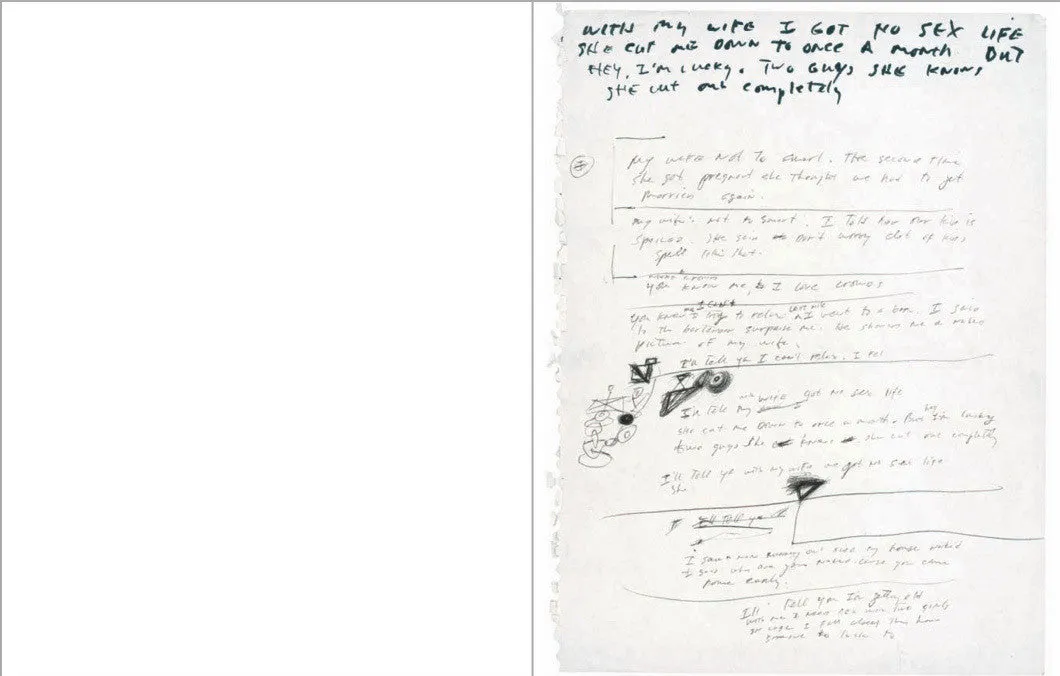 WITH MY WIFE I GOT NO SEX LIFE
SHE CUT ME DOWN TO ONCE A MONTH BUT
HEY, I'M lucky. TWO GUYS SHE KNOWS
SHE CUT out completely
My wife not To smart. The second Time
she got pregnant she Thought we had To get
married again.
my wife's not to smart. I Told her our kid is
spoiled. She said Don't worry alot of kids
smell like that.
you know me, I love crowds
I can't
you know I try to relax I went to a bar. I said
to the bartender surprise me. he shows me a naked
picture of my wife.
I'll tell ya I can't relax. I
I'll tell my wife got no sex life
she cut me down to once a month. But I'm lucky
two guys she knows she cut out completely
I'll Tell ya with my wife no sex life
She
I'll Tell ya
I saw a man running out side my house naked
I said why are you naked. cause you came
home early.
I'll Tell you I'm getting old
with me I need sex with two girls
I fall asleep they have
someone to talk to